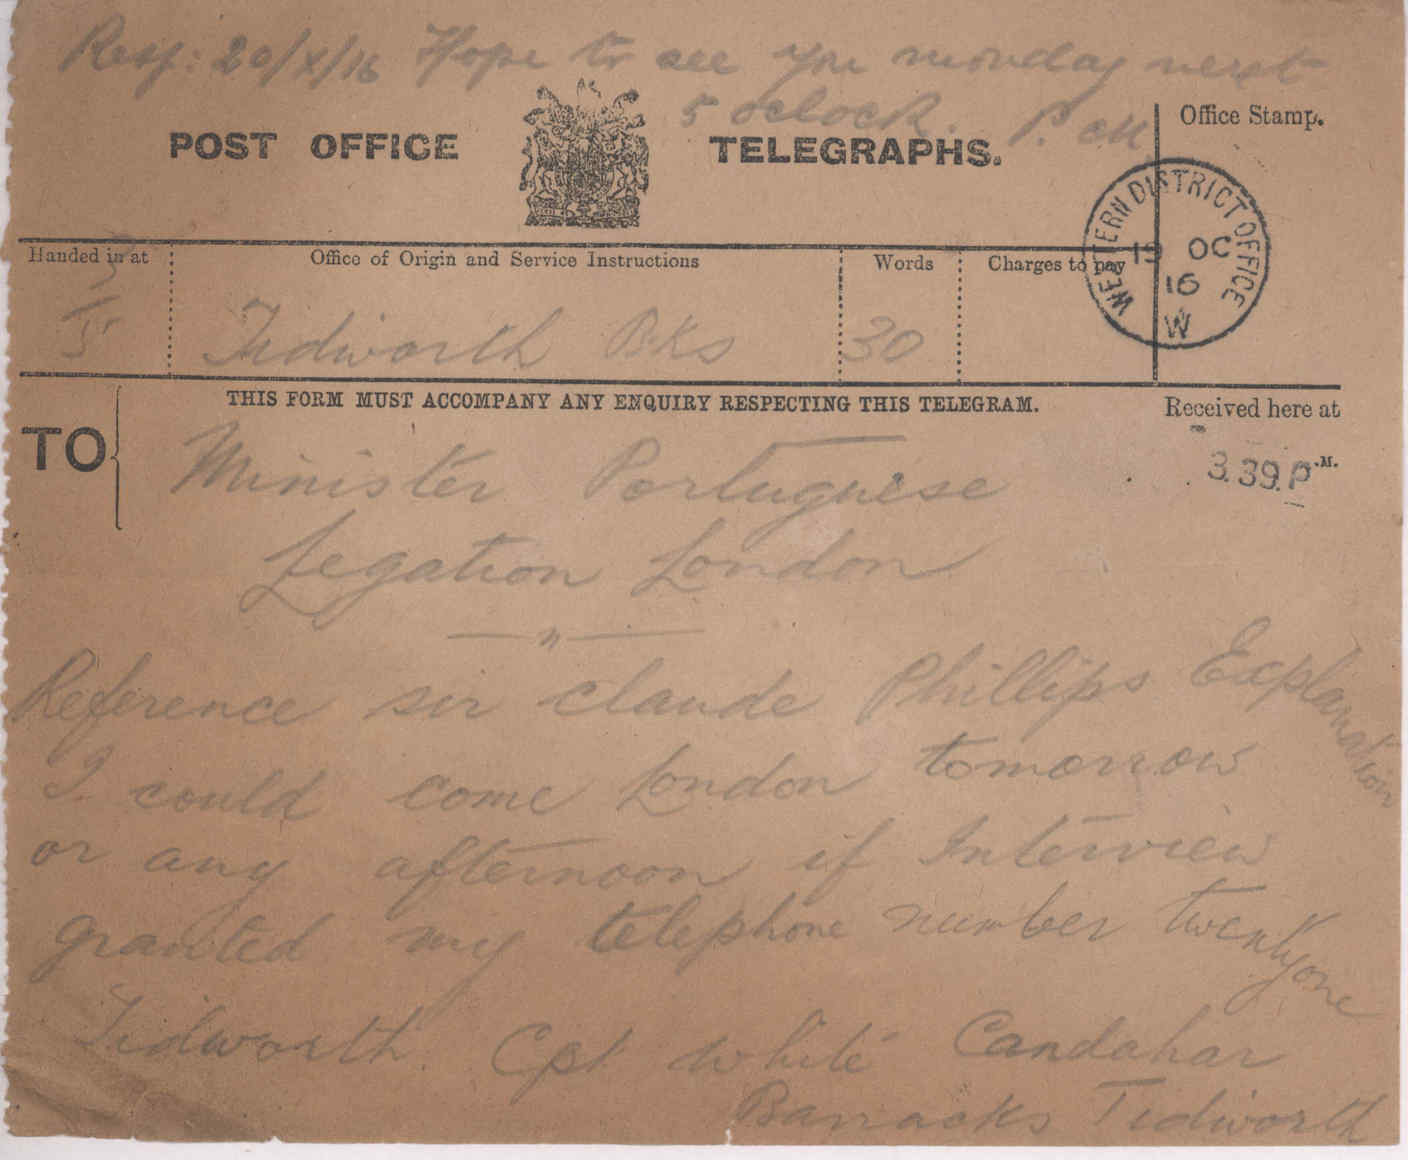 Resp: 20/X/16 Hope to see you monday next
5 oclock. P. M.
POST OFFICE TELEGRAPHS.
Office Stamp.
WESTERN DISTRICT OFFICE
19 OC
16
W
Handed in at
Office of Origin and Service Instructions
Words
Charges to pay
Tidworth Bks
30
THIS FORM MUST ACCOMPANY ANY ENQUIRY RESPECTING THIS TELEGRAM.
Received here at
3.39.P.M.
TO
Minister Portuguese
Legation London
Reference sir claude Phillips Explanation
I could come London tomorrow
or any afternoon if Interview
granted my telephone number twentyone
Tidworth. Cpt White Candahar
Barracks Tidworth